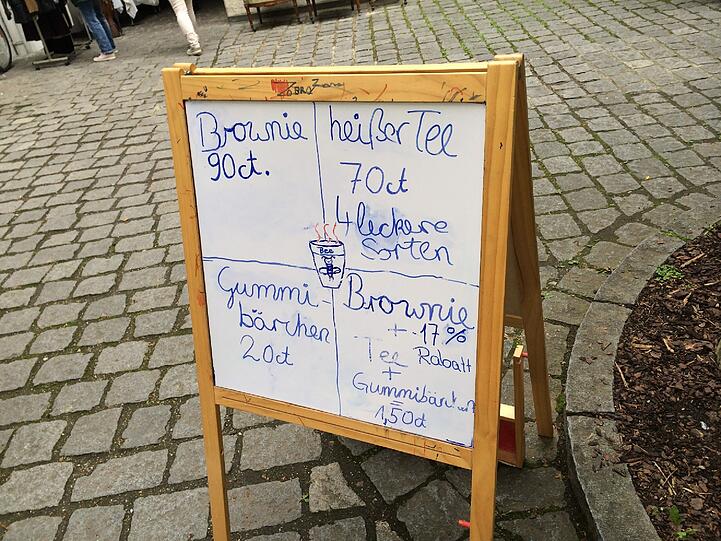 Brownie
90ct.
heißer Tee
70ct
4 leckere
Sorten
Bee
Gummi-
bärchen
20ct
Brownie
+ -17%
Tee Rabatt
+
Gummibärchen
=
1,50ct